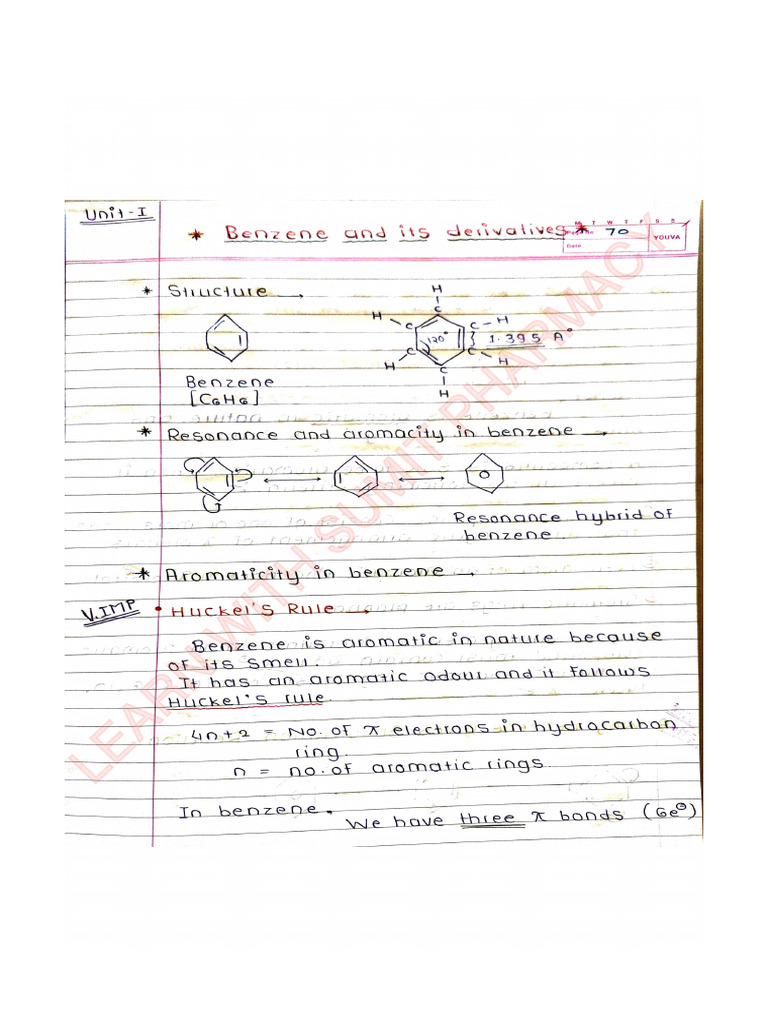 Unit-I
M T W T F S S
Page No 70
Date
YOUVA
* Benzene and its derivatives *
* Structure →
H
H C C - H
120° 1.395 A°
C C
H H
C
H
Benzene
[C6H6]
* Resonance and aromacity in benzene →
Resonance hybrid of
benzene
* Aromaticity in benzene →
V.IMP • Huckel's Rule →
Benzene is aromatic in nature because
of its smell.
It has an aromatic odour and it follows
Huckel's rule
4n+2 = No. of π electrons in hydrocarbon
ring.
n = no. of aromatic rings
In benzene.
We have three π bonds (6e⊖)
LEARN WITH SUMIT PHARMACY